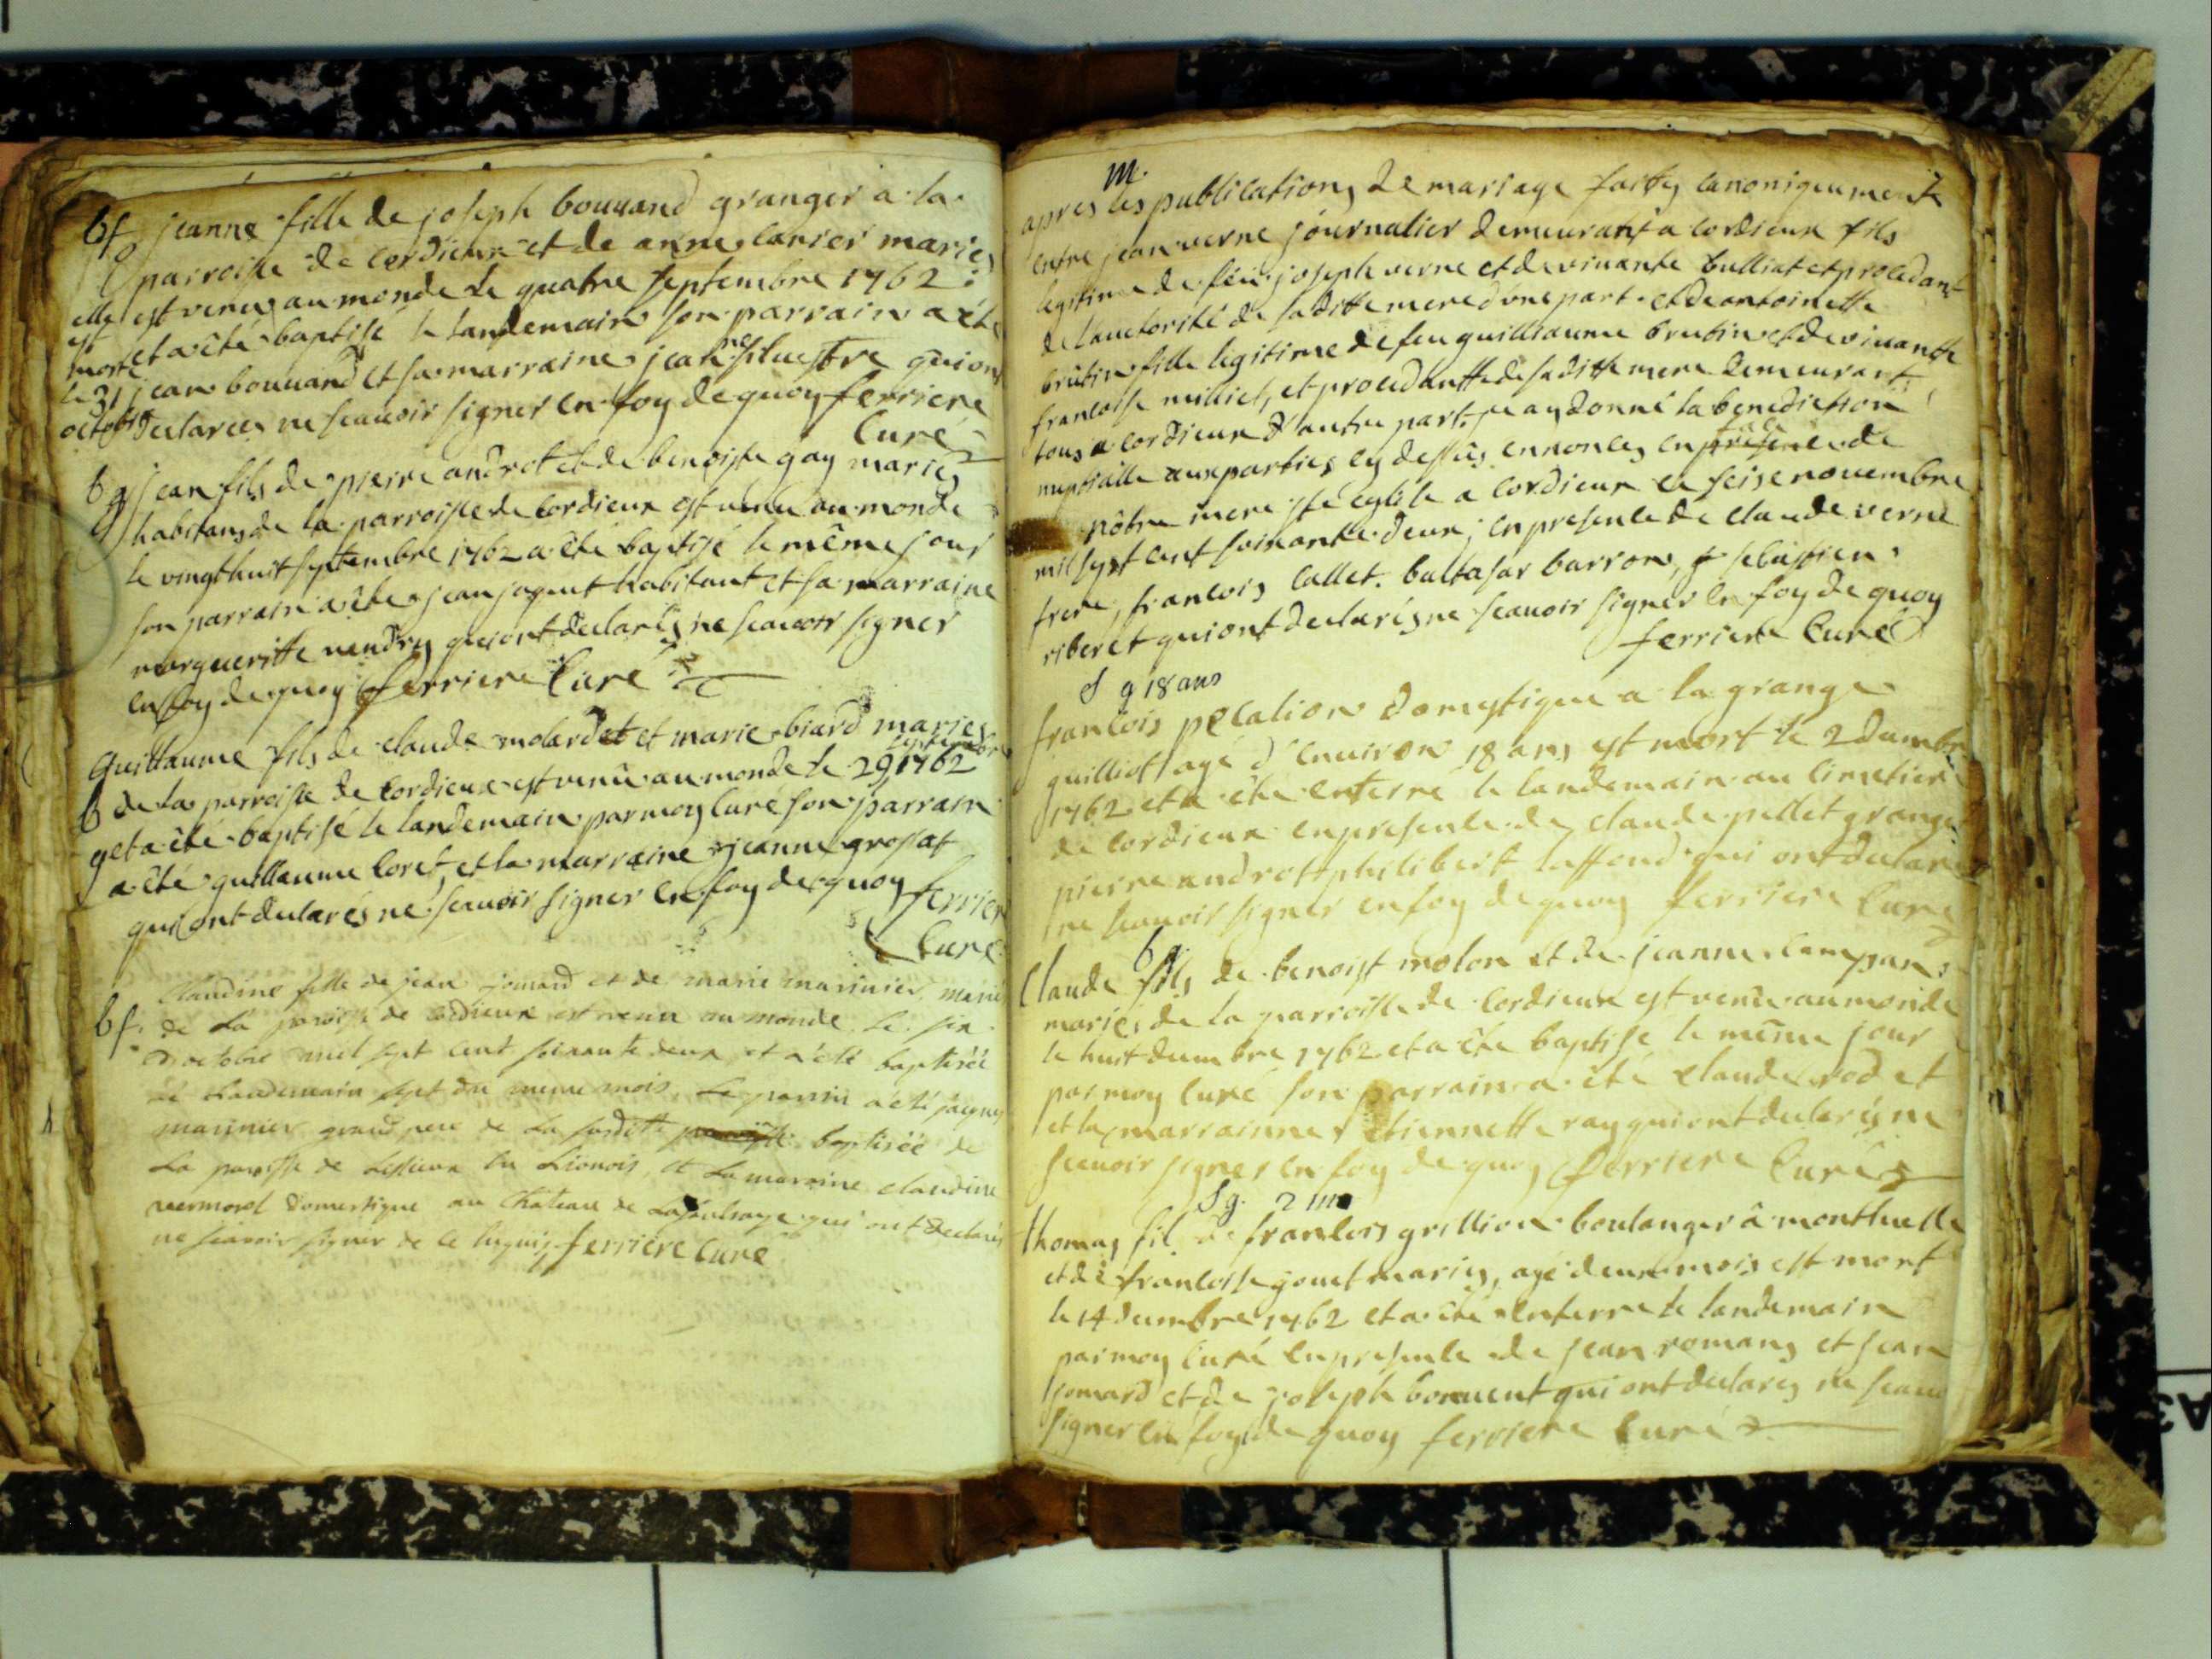 bf jeanne fille de joseph bouvand granger a la
parroisse de cordieux et de anne carier mariés
elle est venu au monde le quatre septembre 1762
et a été baptisé le landemain son parrain a été
est
morte
le 31
octobr
jean bouvand et sa marraine jeanne siluestre qui ont
declarées ne scauoir signer en foy de quoy ferriere
Curé
bg jean fils de pierre androt et de benoiste gay mariés
habitans de la parroisse de cordieux est venu au monde
le vingthuit septembre 1762 a été baptisé le même jour
son parrain a été jean jaquet habitant et sa marraine
margueritte vendry qui ont declarés ne scauoir signer
en foy de quoy ferriere Curé
guillaume fils de claude molardet et marie biard mariés
b de la parroisse de cordieux est venu au monde le 29 septembre 1762
g et a été baptisé le landemain par moy curé son parrain
a été guillaume loret, et la marraine jeanne grosat
qui ont declarés ne scauoir signer en foy de quoy ferriere
Curé
Claudine fille de jean jomard et de marie marinier mariés
bf. de la paroisse de cordieux est venu au monde le six
d'octobre mil sept cent soixante deux et a été baptisée
le Landemain sept du meme mois. Le parrin a été jacques
marinier grand pere de La suditte baptisée de
la paroisse de en Lionois, et La maraine claudine
vermorel domestique au Chateau de qui ont declarés
ne scavoir signer de ce ferriere Curé
m.
apres les publications de mariage faittes canoniquement
entre jean verne journalier demeurant a cordieux fils
legitime de feu joseph verne et de viuante bulliat et procedant
de lauctorité de saditte mere d'une part. et de antoinette
brutin fille legitime de feu guilliaume brutin et de viuante
francoise milliet, et procedantte de saditte mere demeurant
tous a cordieux d'autre part. je ay donné la benediction
nuptialle aux parties cy dessus ennoncés en face de
nôtre mere ste eglise a cordieux ce seise nouembre
mil sept cent soixante deux; en presence de claude verne
frere, francois callet. baltasar barron, sebastien
riberet qui ont declarés ne scauoir signer en foy de quoy
ferriere Curé
S g 18 ans
francois pecalion domestique a la grange
guilliot agé d'enuiron 18 ans est mort le 2 decembre
1762 et a été enterré le landemain au cimetier
de cordieux en presence de claude pellet granger
pierre androt philibert laffond qui ont declarés
ne scauoir signer en foy de quoy ferriere Curé
b g
Claude fils de benoist molon et de jeanne campan
mariés de la parroisse de cordieux est venu au monde
le huit decembre 1762 et a été baptisé le même jour
par moy curé son parrain a été claude rodet
et la marrainne etiennette ray qui ont declarés ne
scauoir signer en foy de quoy ferriere Curé
S g. 2 m
thomas fil. de francois grillion boulanger à montluelle
et de francoise gouet mariés, agé deux mois est mort
le 14 decembre 1762 et a été enterré le landemain
par moy curé en presence de jean romans et jean
jomard et de joseph bouuent qui ont declarés ne scauoir
signer en foy de quoy ferriere Curé